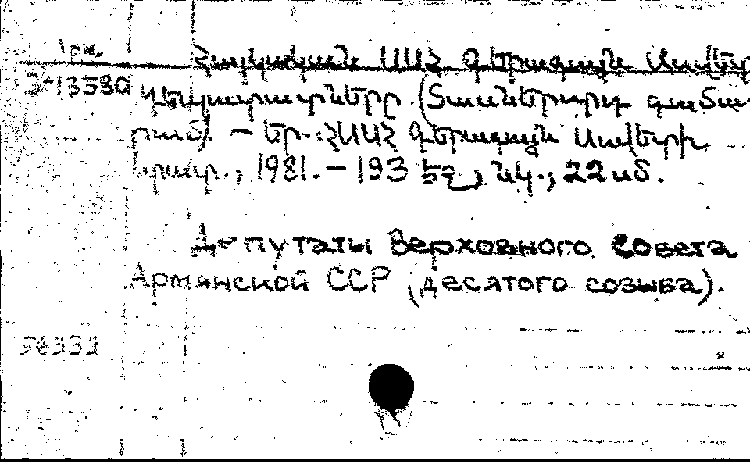 Հայկական ՍՍՀ Գերագույն Սովետի
դեպուտատները (Տասներորդ գումա-
րում) – Եր.: ՀՍՍՀ Գերագույն Սովետի
հրատ., 1981. – 193 էջ, նկ., 22 սմ.
Депутаты Верховного Совета
Армянской ССР (десятого созыва).